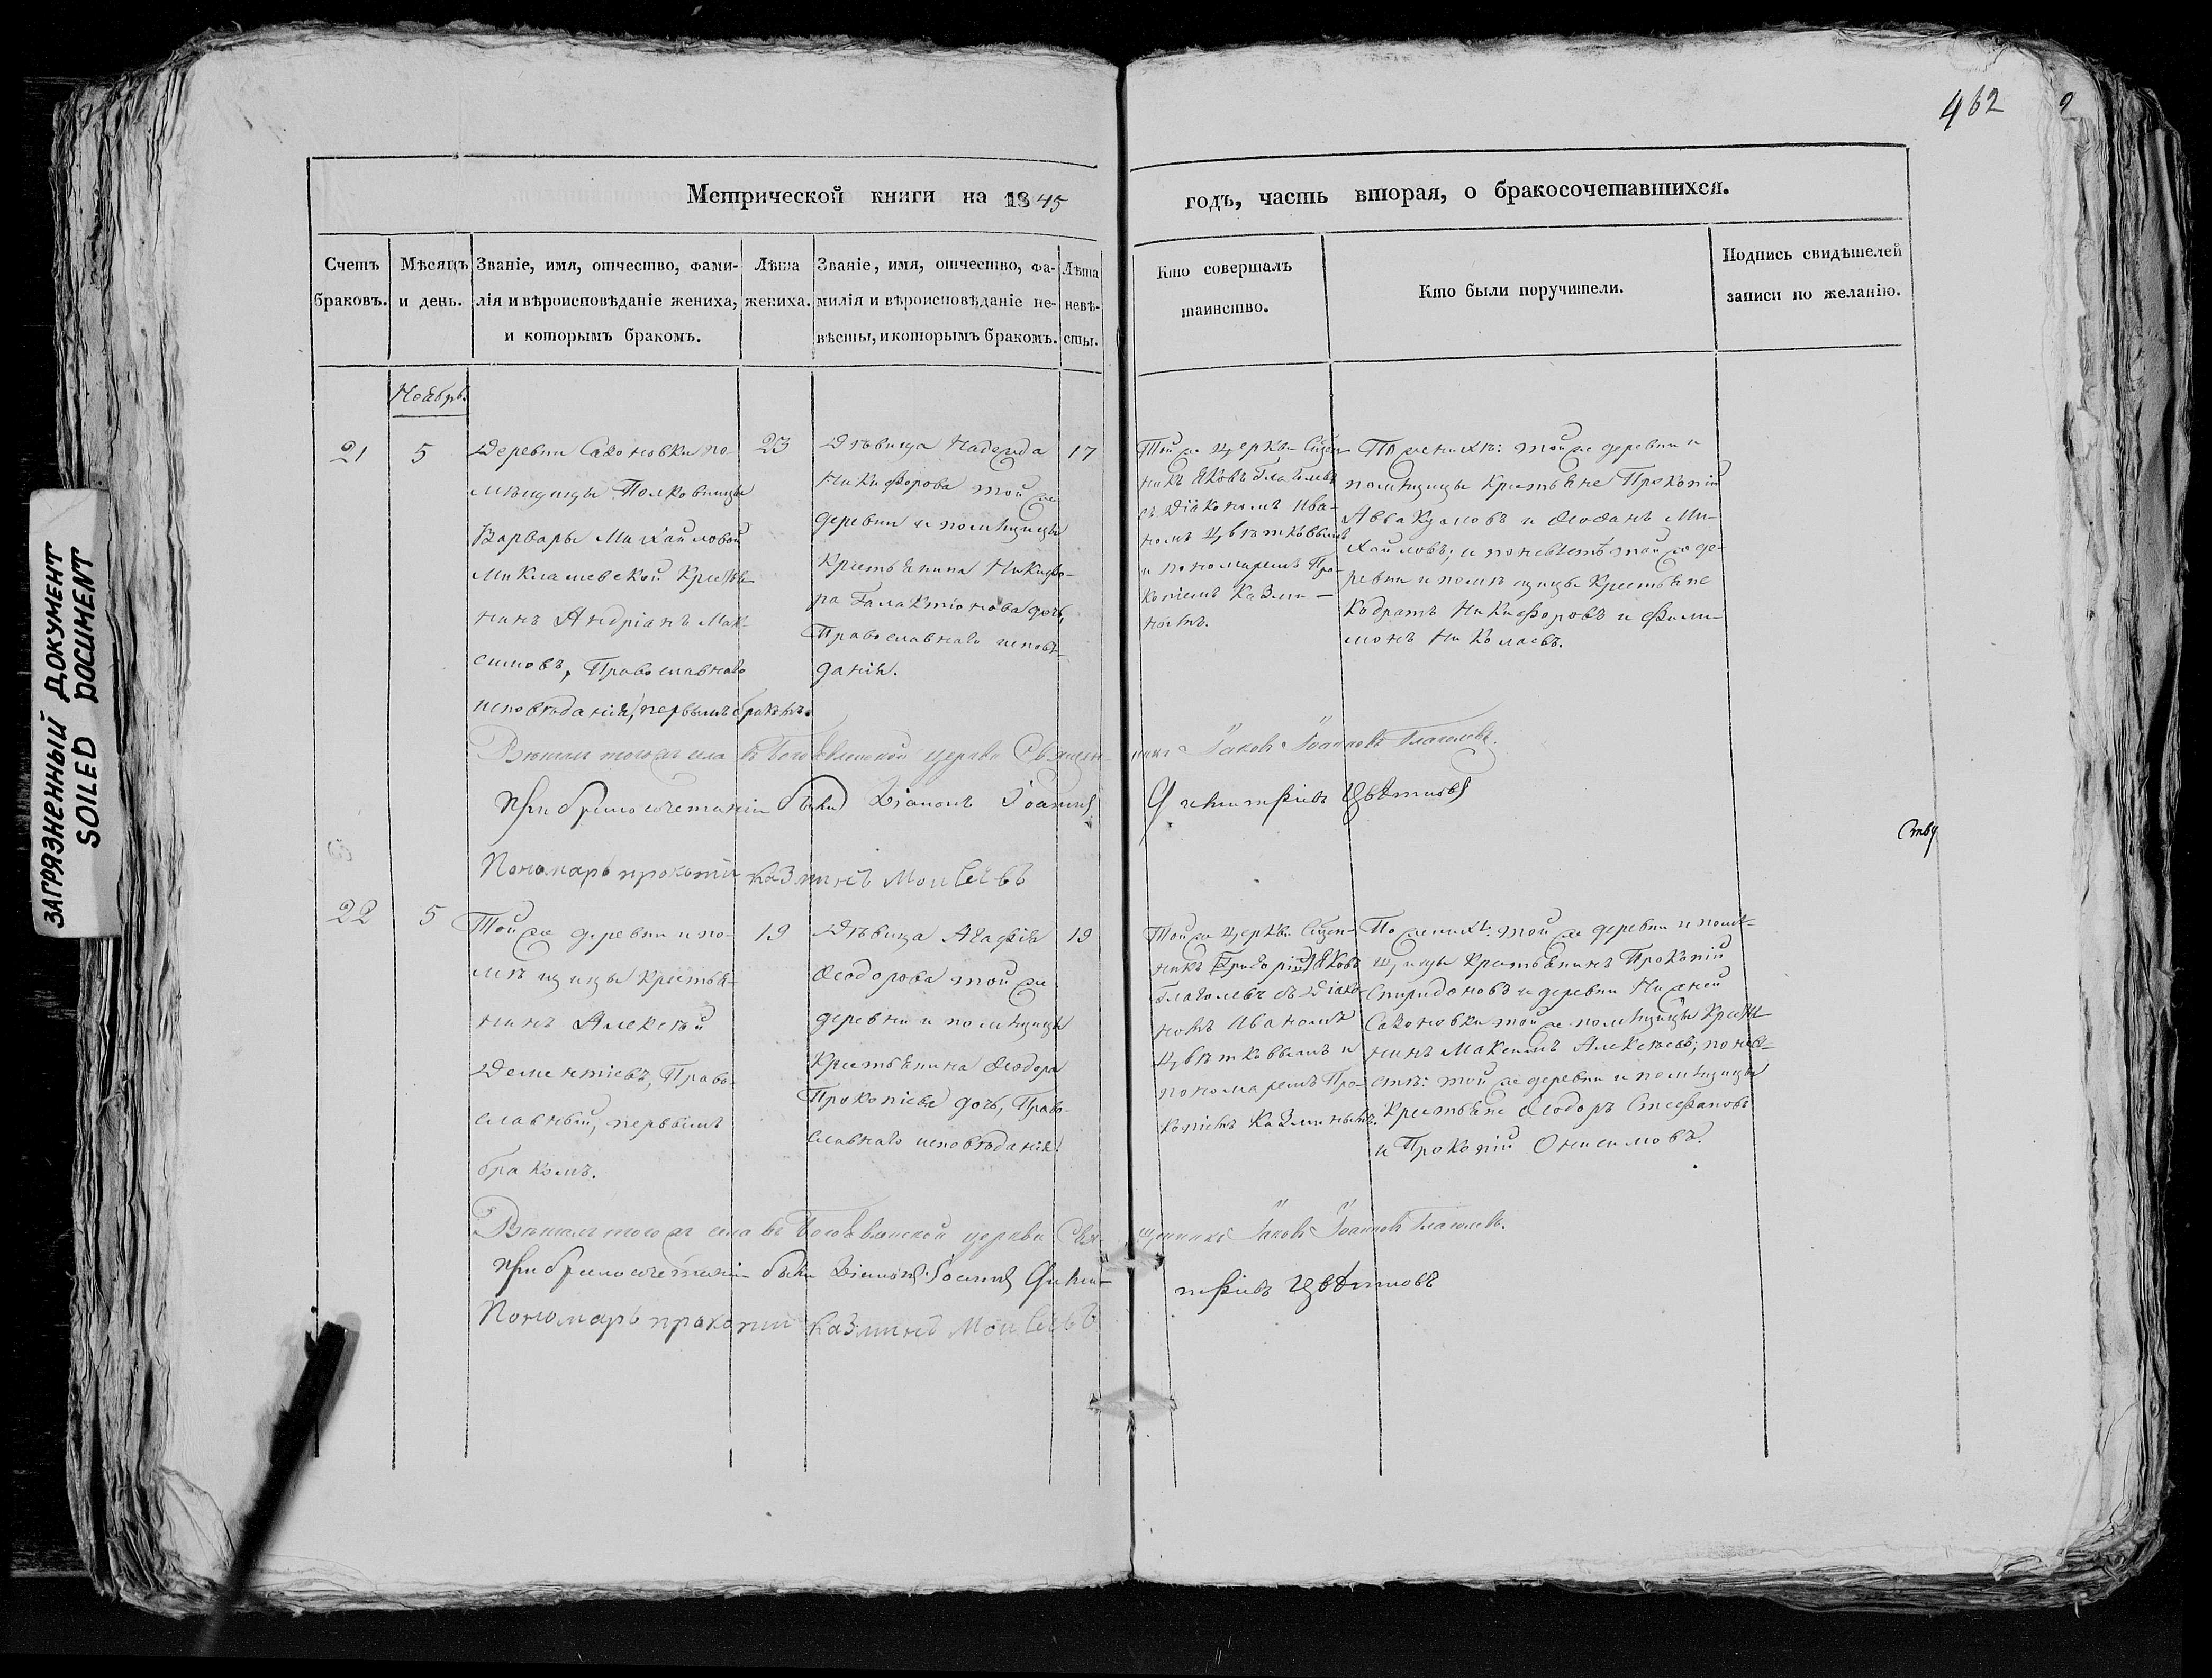 462
ЗАГРЯЗНЕННЫЙ ДОКУМЕНТ
SOILED DOCUMENT
Метрической книги на 1845
годъ, часть вторая, о бракосочетавшихся.
Счетъ браковъ.
Мѣсяцъ и день.
Званіе, имя, отчество, фами-
лія и вѣроисповѣданіе жениха,
и которымъ бракомъ.
Лѣта жениха.
Званіе, имя, отчество, фа-
милія и вѣроисповѣданіе не-
вѣсты, и которымъ бракомъ.
Лѣта невѣ-
сты.
Кто совершалъ
таинство.
Кто были поручители.
Подпись свидѣтелей
записи по желанію.
Ноябрь.
21
5
Деревни Сазоновки по-
мѣщицы Полковницы
Варвары Михайловой
Миклашевской Крестья-
нинъ Андріанъ Мак-
симовъ, Православнаго
исповѣданія, первымъ бракомъ.
23
Дѣвица Надежда
Никифорова той же
деревни и помѣщицы
Крестьянина Никифо-
ра Галактіонова дочь,
Православнаго исповѣ-
данія.
17
Той же церкви Свщен-
никъ Яковъ Глаголевъ
съ Діакономъ Ива-
номъ Цвѣтковымъ
и пономаремъ Про-
копіемъ Казми-
нымъ.
По женихѣ: той же деревни и
помѣщицы Крестьяне Прокопій
Аввакумовъ и Феофанъ Ми-
хайловъ; и по невѣстѣ той же де-
ревни и помѣщицы Крестьяне
Кодратъ Никифоровъ и Фили-
монъ Николаевъ.
Вѣнчалъ тогожъ села въ Богоявленской церкви Священ-
никъ Іаковъ Іоанновъ Глаголевъ.
При бракосочетаніи были Діаконъ Іоаннъ
Димитріевъ Цвѣтковъ
Пономарь прокопій казминъ Моисеевъ
22
5
Той же деревни и по-
мѣщицы Крестья-
нинъ Алексѣй
Дементіевъ, Право-
славный, первымъ
бракомъ.
19
Дѣвица Агафія
Феодорова той же
деревни и помѣщицы
Крестьянина Феодора
Прокопіева дочь, Право-
славнаго исповѣданія.
19
Той же церкви Свщен-
никъ Яковъ
Глаголевъ съ Діако-
номъ Иваномъ
Цвѣтковымъ и
пономаремъ Про-
копіемъ Казминымъ.
По женихѣ: той же деревни и помѣ-
щицы Крестьянинъ Прокопій
Спиридоновъ и деревни Нижней
Сазоновки той же помѣщицы Крестья-
нинъ Максимъ Алексѣевъ; по невѣ-
стѣ: той же деревни и помѣщицы
Крестьяне Феодоръ Стефановъ
и Прокопій Онисимовъ.
Вѣнчалъ тогожъ села въ Богоявленской церкви Свя-
щенникъ Іаковъ Іоанновъ Глаголевъ.
При бракосочетаніи были Діаконъ Іоаннъ Дими-
тріевъ Цвѣтковъ
Пономарь прокопій казминъ Моисеевъ